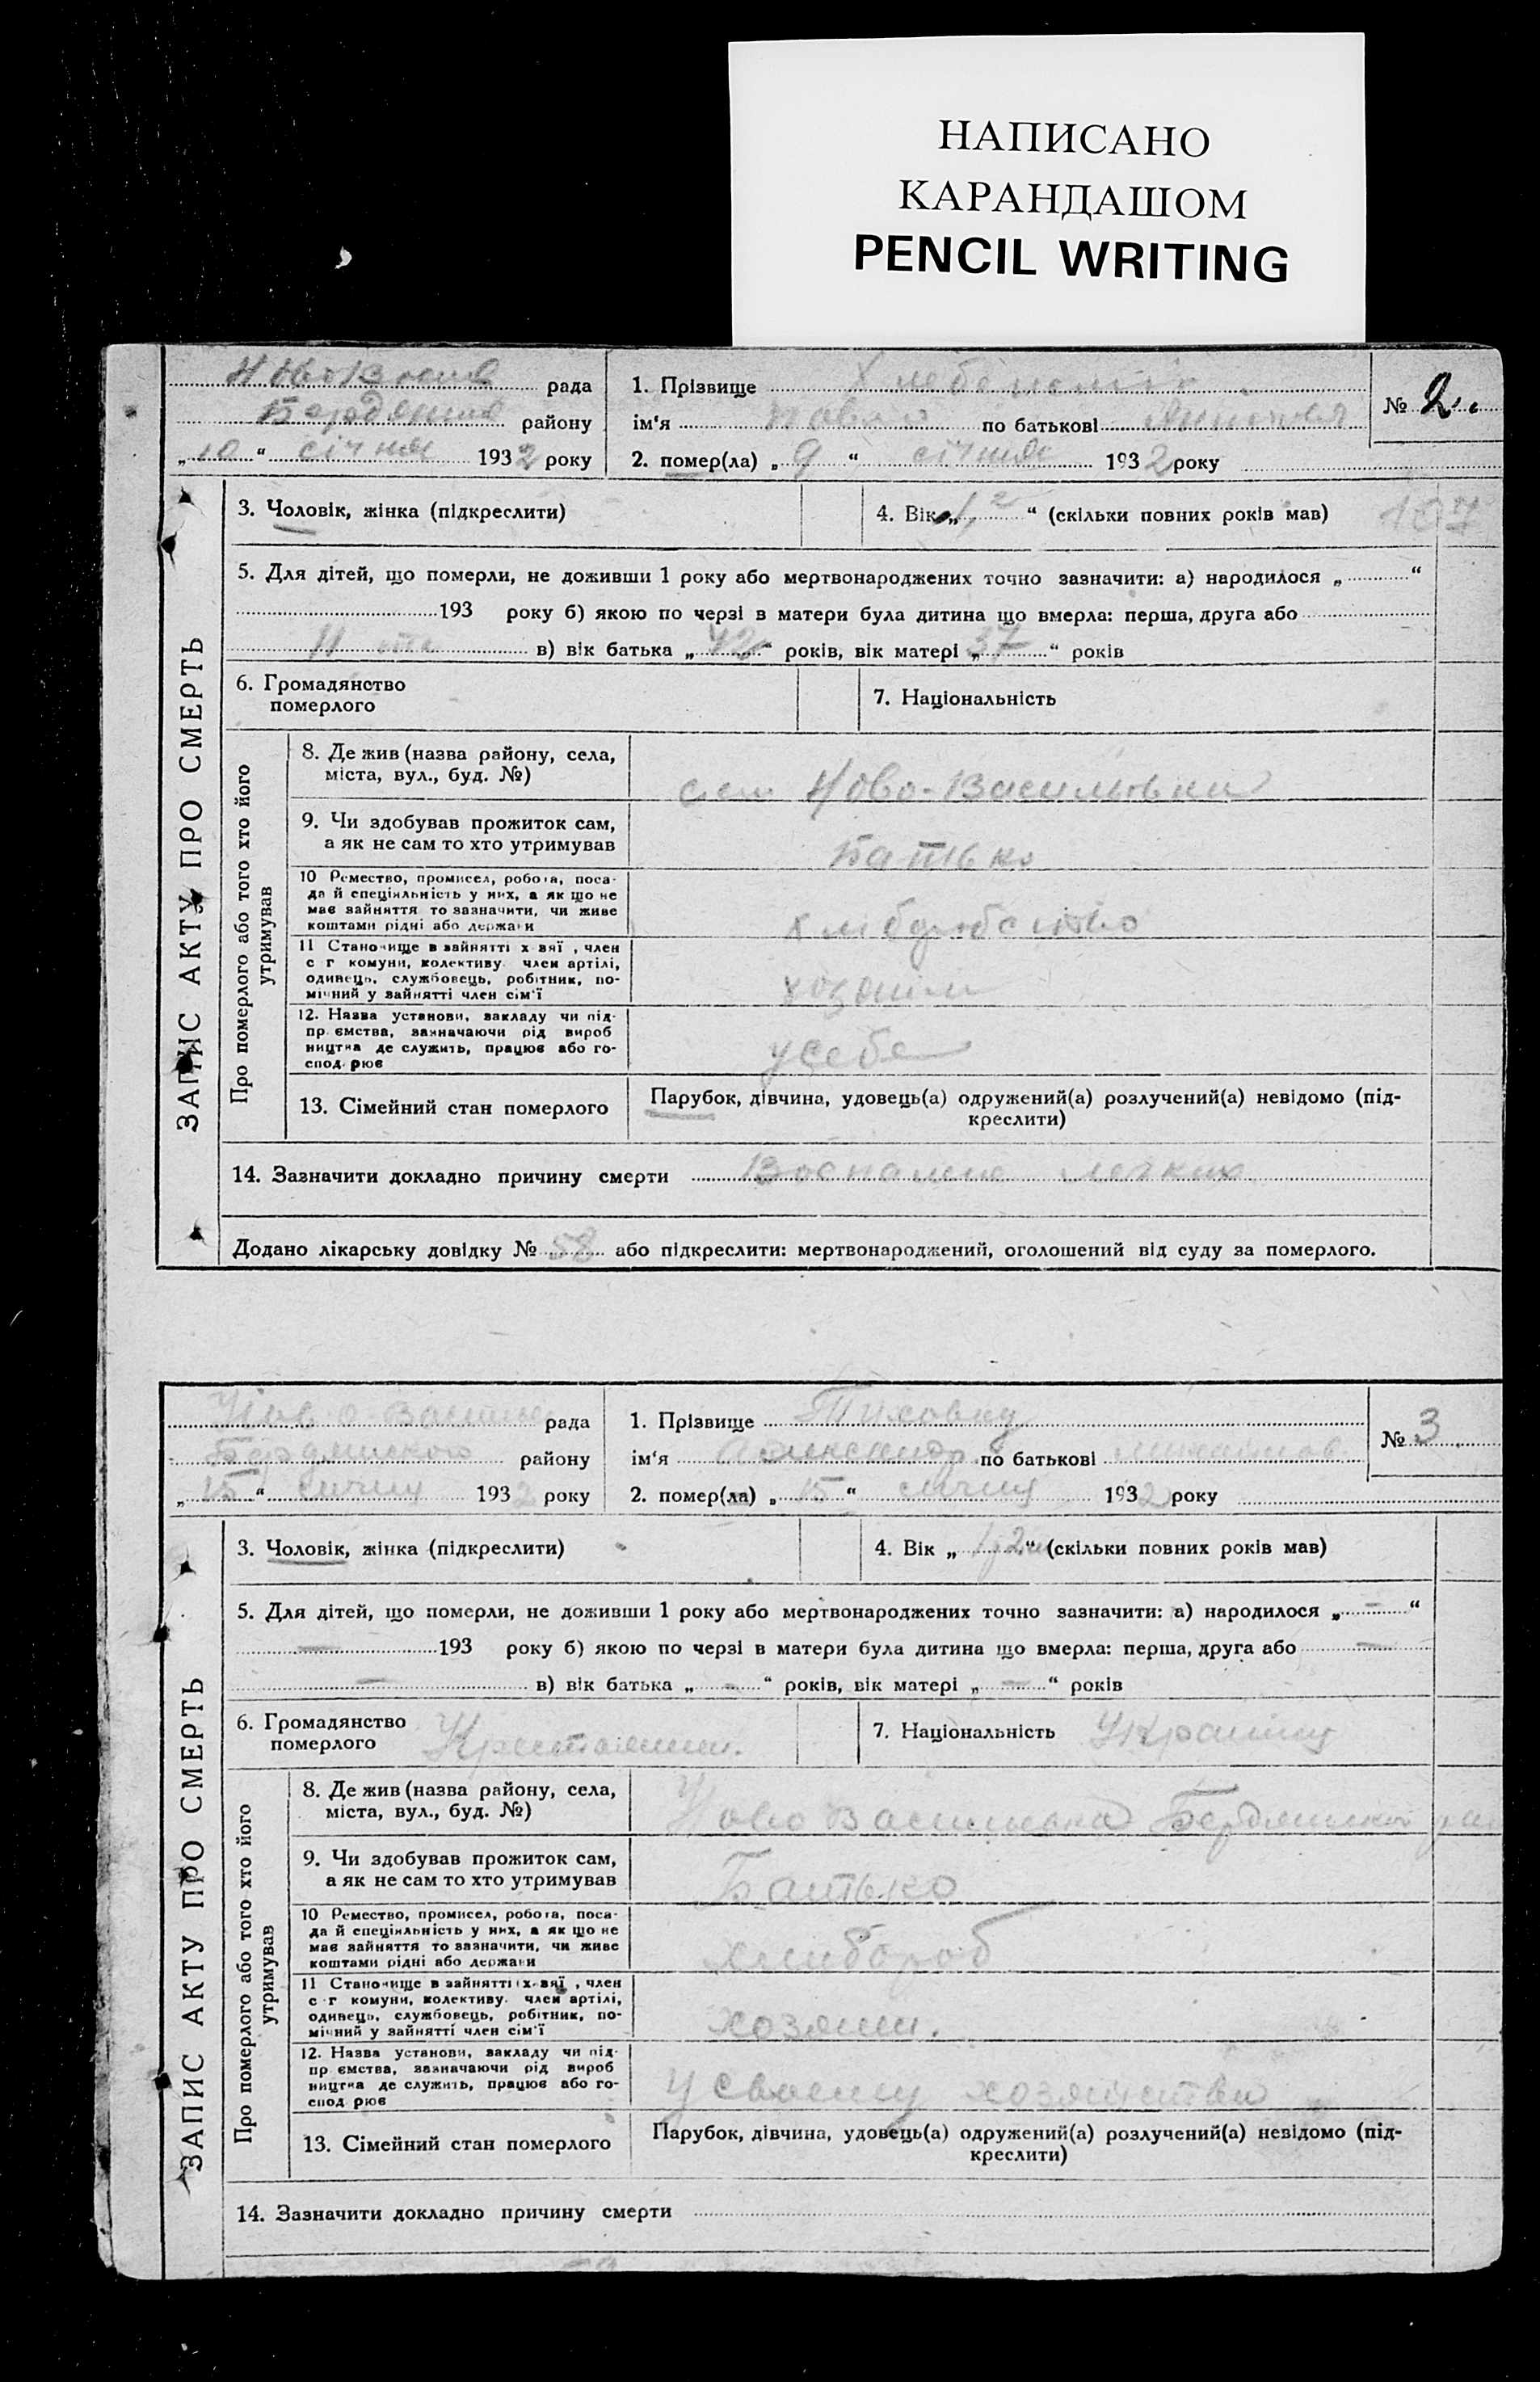 НАПИСАНО
КАРАНДАШОМ
PENCIL WRITING
рада
району
„ 10 “ січня 1932 року
1. Прізвище
ім'я Павло по батькові
№ 2.
2. помер(ла) „ 9 “ січня 1932 року
ЗАПИС АКТУ ПРО СМЕРТЬ
3. Чоловік, жінка (підкреслити)
4. Вік „ “ (скільки повних років мав)
107
5. Для дітей, що померли, не доживши 1 року або мертвонароджених точно зазначити: а) народилося „ “
193 року б) якою по черзі в матери була дитина що вмерла: перша, друга або
11 в) вік батька „ 42 “ років, вік матері „ 37 “ років
6. Громадянство
померлого
7. Національність
Про померлого або того хто його
утримував
8. Де жив (назва району, села,
міста, вул., буд. №)
Ново-Васильовки
9. Чи здобував прожиток сам,
а як не сам то хто утримував
Батько
10 Ремество, промисел, робота, поса-
да й спеціяльність у них, а як що не
має зайняття то зазначити, чи живе
коштами рідні або держави
хлібороство
11 Становище в зайнятті х вяї , член
с г комуни, колективу член артілі,
одинець, службовець, робітник, по-
мічний у зайнятті член сім'ї
хозяїн
12. Назва установи, закладу чи під-
пр ємства, зазначаючи рід вироб
ництва де служить, працює або го-
спод рює
у себе
13. Сімейний стан померлого
Парубок, дівчина, удовець(а) одружений(а) розлучений(а) невідомо (під-
креслити)
14. Зазначити докладно причину смерти Воспаление легких
Додано лікарську довідку № 58 або підкреслити: мертвонароджений, оголошений від суду за померлого.
рада
Бердянского району
„ 15 “ 1932 року
1. Прізвище
ім'я Александр по батькові
№ 3.
2. помер(ла) „ 15 “ 1932 року
ЗАПИС АКТУ ПРО СМЕРТЬ
3. Чоловік, жінка (підкреслити)
4. Вік „ “ (скільки повних років мав)
5. Для дітей, що померли, не доживши 1 року або мертвонароджених точно зазначити: а) народилося „ — “
— 193 року б) якою по черзі в матери була дитина що вмерла: перша, друга або —
— в) вік батька „ — “ років, вік матері „ — “ років
6. Громадянство
померлого
7. Національність
Про померлого або того хто його
утримував
8. Де жив (назва району, села,
міста, вул., буд. №)
Ново Васильовка
9. Чи здобував прожиток сам,
а як не сам то хто утримував
Батько
10 Ремество, промисел, робота, поса-
да й спеціяльність у них, а як що не
має зайняття то зазначити, чи живе
коштами рідні або держави
хлибороб
11 Становище в зайнятті х вяї , член
с г комуни, колективу член артілі,
одинець, службовець, робітник, по-
мічний у зайнятті член сім'ї
хозяин.
12. Назва установи, закладу чи під-
пр ємства, зазначаючи рід вироб
ництва де служить, працює або го-
спод рює
у своему хозяйстви
13. Сімейний стан померлого
Парубок, дівчина, удовець(а) одружений(а) розлучений(а) невідомо (під-
креслити)
14. Зазначити докладно причину смерти